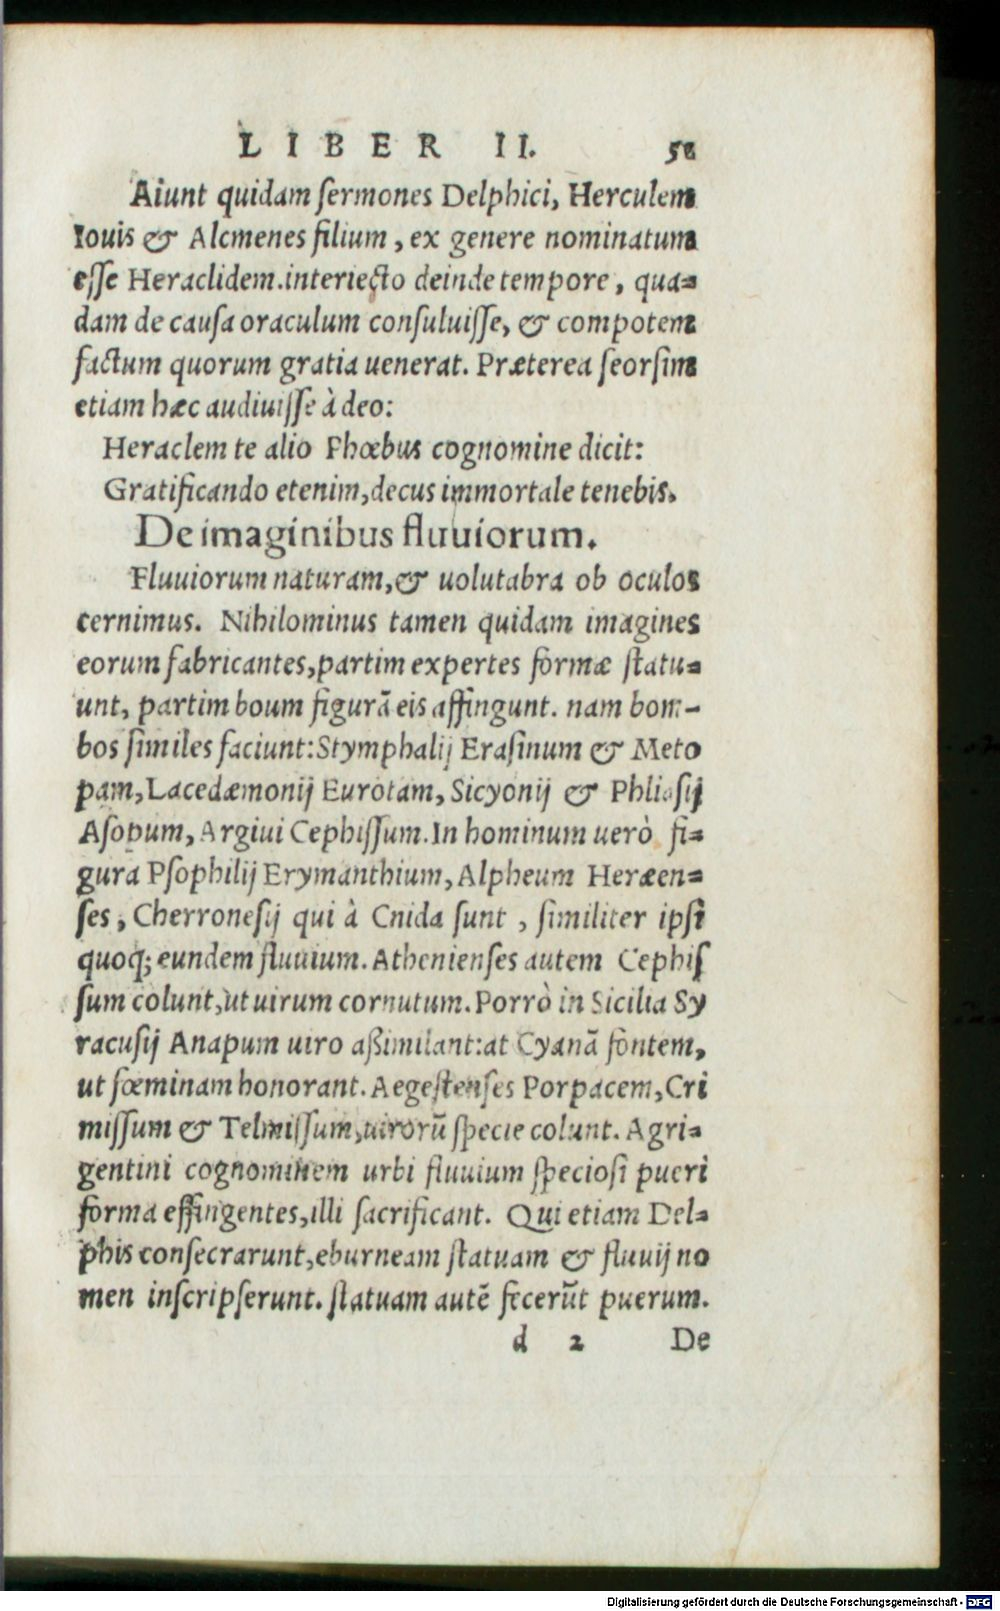 LIBER II. 51
Aiunt quidam sermones Delphici, Herculem
Iouis & Alcmenes filium, ex genere nominatum
esse Heraclidem.interiecto deinde tempore, qua=
dam de causa oraculum consuluisse, & compotem
factum quorum gratia uenerat. Præterea seorsim
etiam hæc audiuisse à deo:
Heraclem te alio Phœbus cognomine dicit:
Gratificando etenim, decus immortale tenebis.
De imaginibus fluuiorum.
Fluuiorum naturam, & uolutabra ob oculos
cernimus. Nihilominus tamen quidam imagines
eorum fabricantes, partim expertes formæ statu=
unt, partim boum figurā eis affingunt. nam bom-
bos similes faciunt: Stymphalij Erasinum & Meto
pam, Lacedæmonij Eurotam, Sicyonij & Phliasij
Asopum, Argiui Cephissum. In hominum uerò fi=
gura Psophilij Erymanthium, Alpheum Heræen=
ses, Cherronesij qui à Cnida sunt, similiter ipsi
quoq; eundem fluuium. Athenienses autem Cephis
sum colunt, ut uirum cornutum. Porrò in Sicilia Sy
racusij Anapum uiro aßimilant: at Cyanā fontem,
ut fœminam honorant. Aegestenses Porpacem, Cri
missum & Telmissum, uirorū specie colunt. Agri=
gentini cognominem urbi fluuium speciosi pueri
forma effingentes, illi sacrificant. Qui etiam Del=
phis consecrarunt, eburneam statuam & fluuij no
men inscripserunt. statuam autē fecerūt puerum.
d 2 De
Digitalisierung gefördert durch die Deutsche Forschungsgemeinschaft - DFG